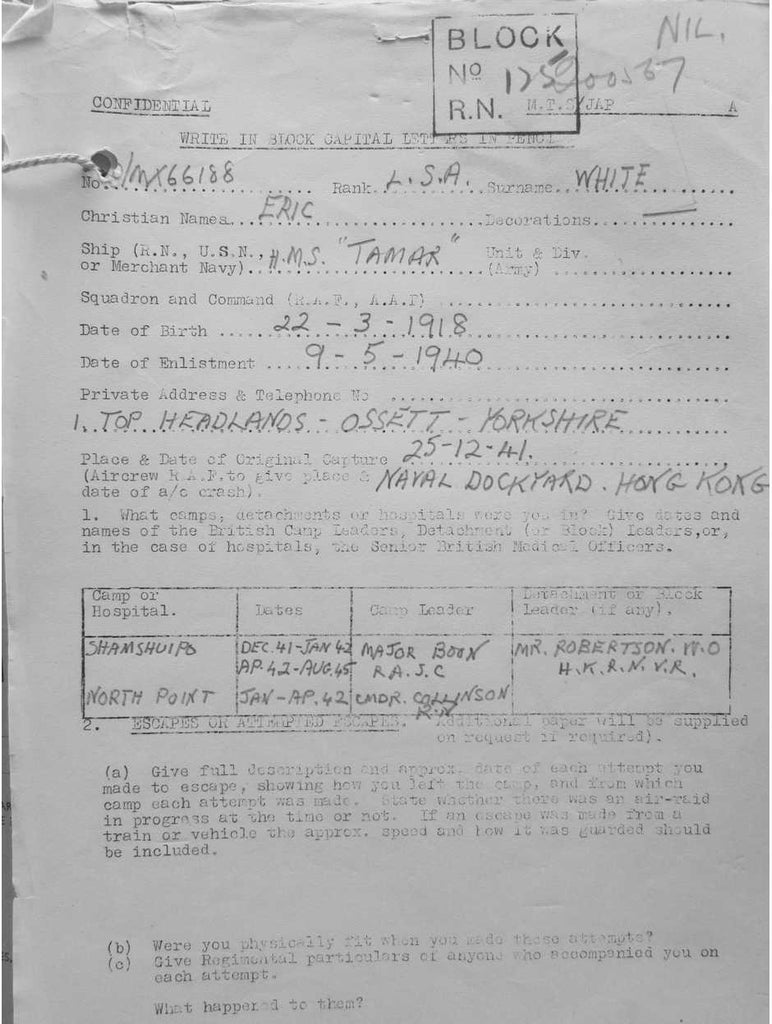 BLOCK
No 125
R.N.
NIL.
CONFIDENTIAL
M.T.S/JAP A
WRITE IN BLOCK CAPITAL LETTERS IN PENCIL
No. /MX66188 Rank. L.S.A. Surname. WHITE
Christian Names. ERIC Decorations. —
Ship (R.N., U.S.N., or Merchant Navy). H.M.S. "TAMAR" Unit & Div. (Army)
Squadron and Command (R.A.F., A.A.F)
Date of Birth 22 - 3 - 1918
Date of Enlistment 9 - 5 - 1940
Private Address & Telephone No
1. TOP HEADLANDS - OSSETT - YORKSHIRE
Place & Date of Original Capture 25-12-41.
(Aircrew R.A.F. to give place & NAVAL DOCKYARD. HONG KONG
date of a/c crash).
1. What camps, detachments or hospitals were you in? Give dates and
names of the British Camp Leaders, Detachment (or Block) Leaders, or,
in the case of hospitals, the Senior British Medical Officers.
Camp or Hospital. Dates Camp Leader Detachment or Block Leader (if any).
SHAMSHUIPO DEC.41-JAN 42 MAJOR BOON MR. ROBERTSON. W.O
AP.42-AUG.45 R.A.S.C H.K.R.N.V.R.
NORTH POINT JAN-AP.42 CMDR. COLLINSON
R.N
2. ESCAPES OR ATTEMPTED ESCAPES. (Additional paper will be supplied
on request if required).
(a) Give full description and approx. date of each attempt you
made to escape, showing how you left the camp, and from which
camp each attempt was made. State whether there was an air-raid
in progress at the time or not. If an escape was made from a
train or vehicle the approx. speed and how it was guarded should
be included.
(b) Were you physically fit when you made these attempts?
(c) Give Regimental particulars of anyone who accompanied you on
each attempt.
What happened to them?